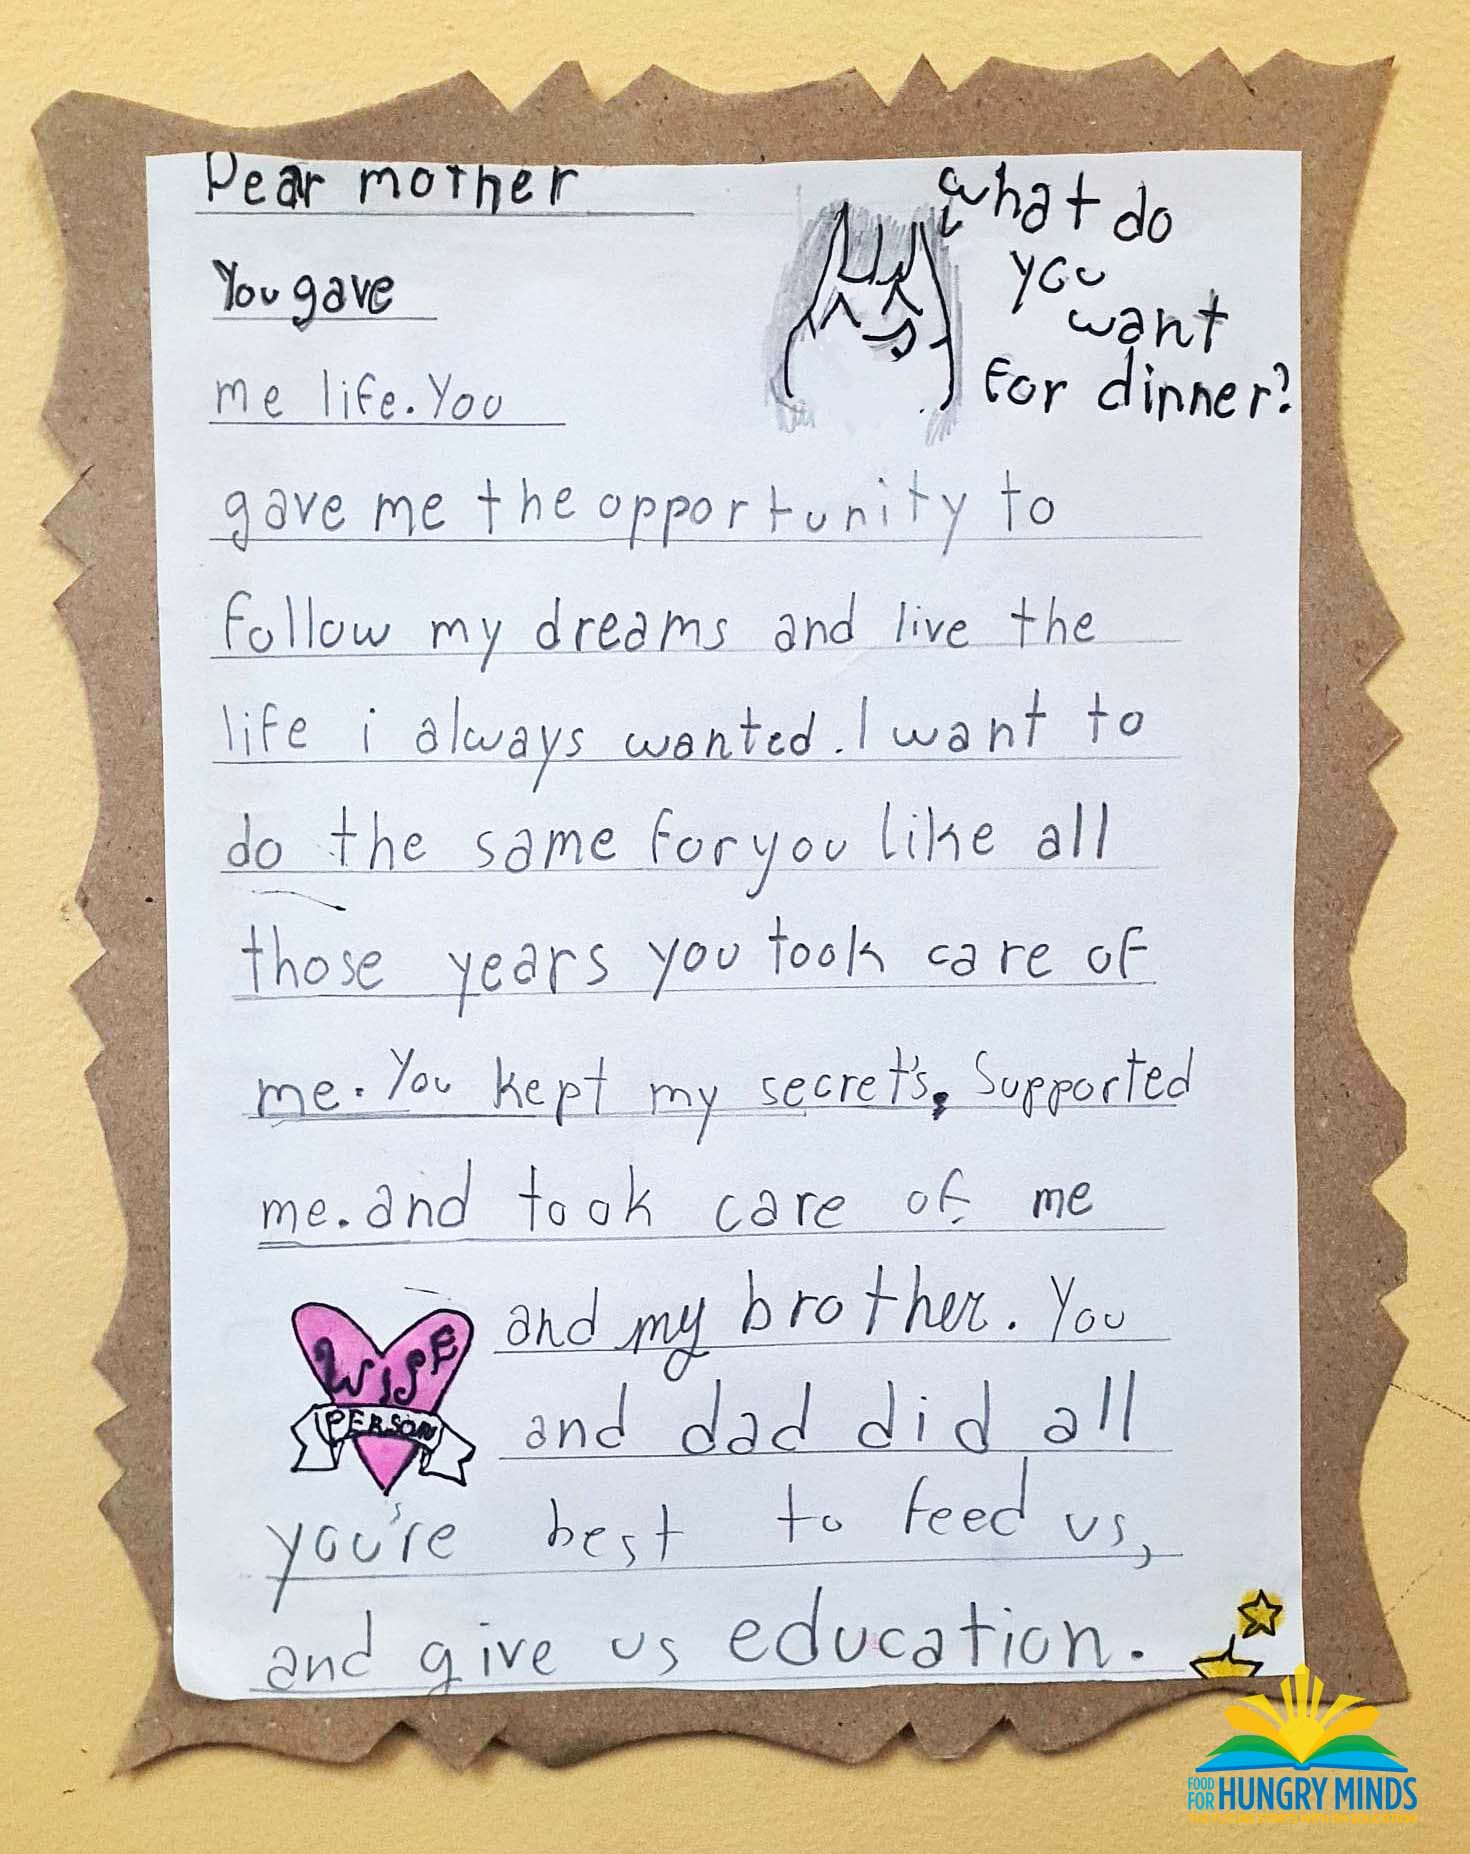 Dear mother
what do
you
want
for dinner?
You gave
me life. You
gave me the opportunity to
follow my dreams and live the
life i always wanted. I want to
do the same for you like all
those years you took care of
me. You kept my secret's, Supported
me. and took care of me
and my brother. You
WISE
PERSON
and dad did all
you're best to feed us,
and give us education.
FOOD
FOR HUNGRY MINDS